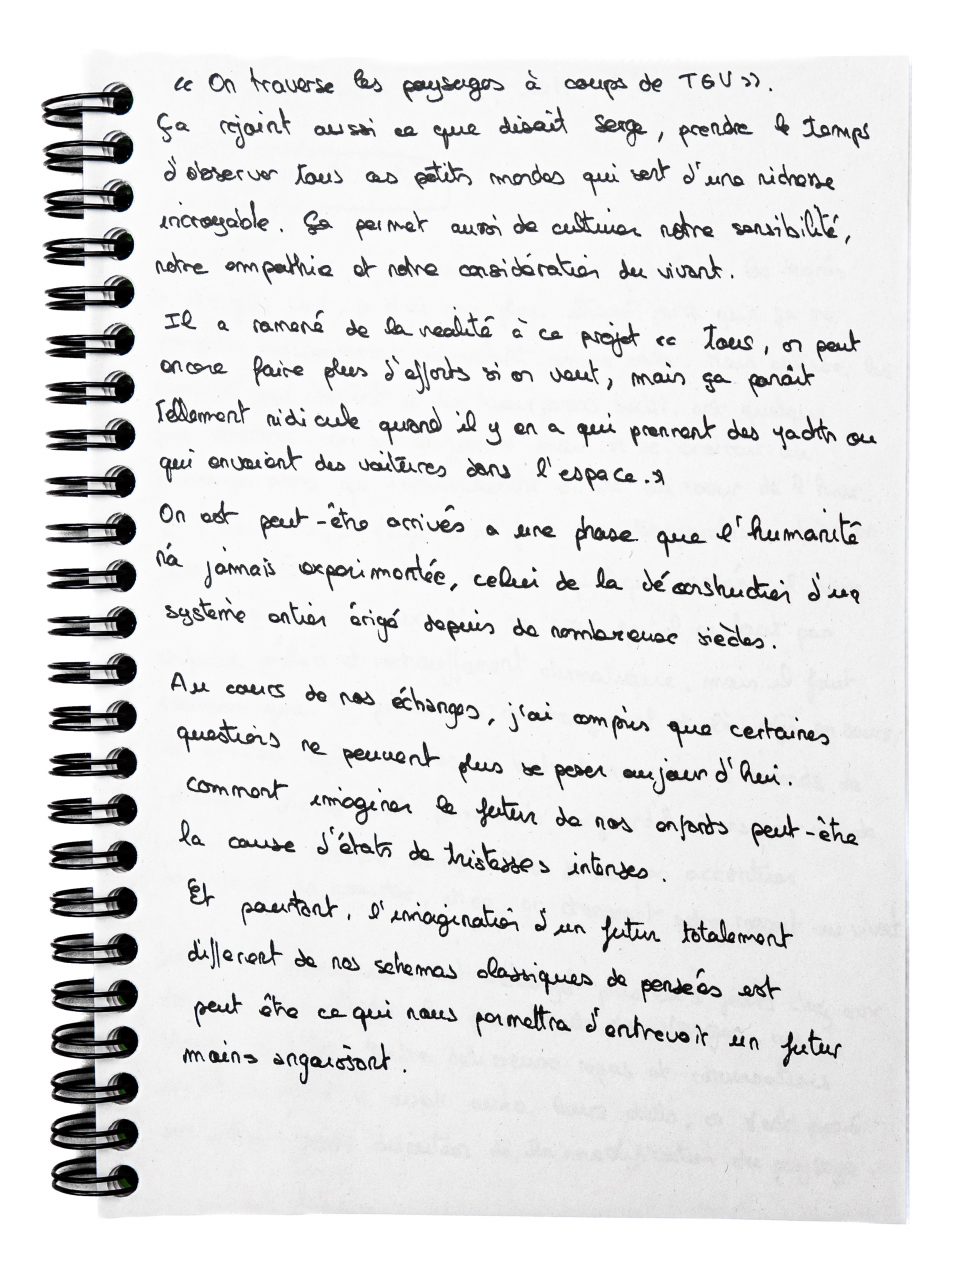 « On traverse les paysages à coups de TGV ».
Ça rejoint aussi ce que disait Serge, prendre le temps
d'observer tous ces petits mondes qui sont d'une richesse
incroyable. Ça permet aussi de cultiver notre sensibilité,
notre empathie et notre considération du vivant.
Il a ramené de la réalité à ce projet « Tous, on peut
encore faire plus d'efforts si on veut, mais ça paraît
tellement ridicule quand il y en a qui prennent des yachts ou
qui envoient des voitures dans l'espace. »
On est peut-être arrivés a une phase que l'humanité
n'a jamais experimentée, celui de la déconstruction d'un
système entier érigé depuis de nombreuse siècles.
Au cours de nos échanges, j'ai compris que certaines
questions ne peuvent plus se poser aujourd'hui.
comment imaginer le futur de nos enfants peut-être
la cause d'états de tristesses intenses.
Et pourtant, l'imagination d'un futur totalement
different de nos schemas classiques de pensées est
peut être ce qui nous permettra d'entrevoir un futur
moins angoissant.